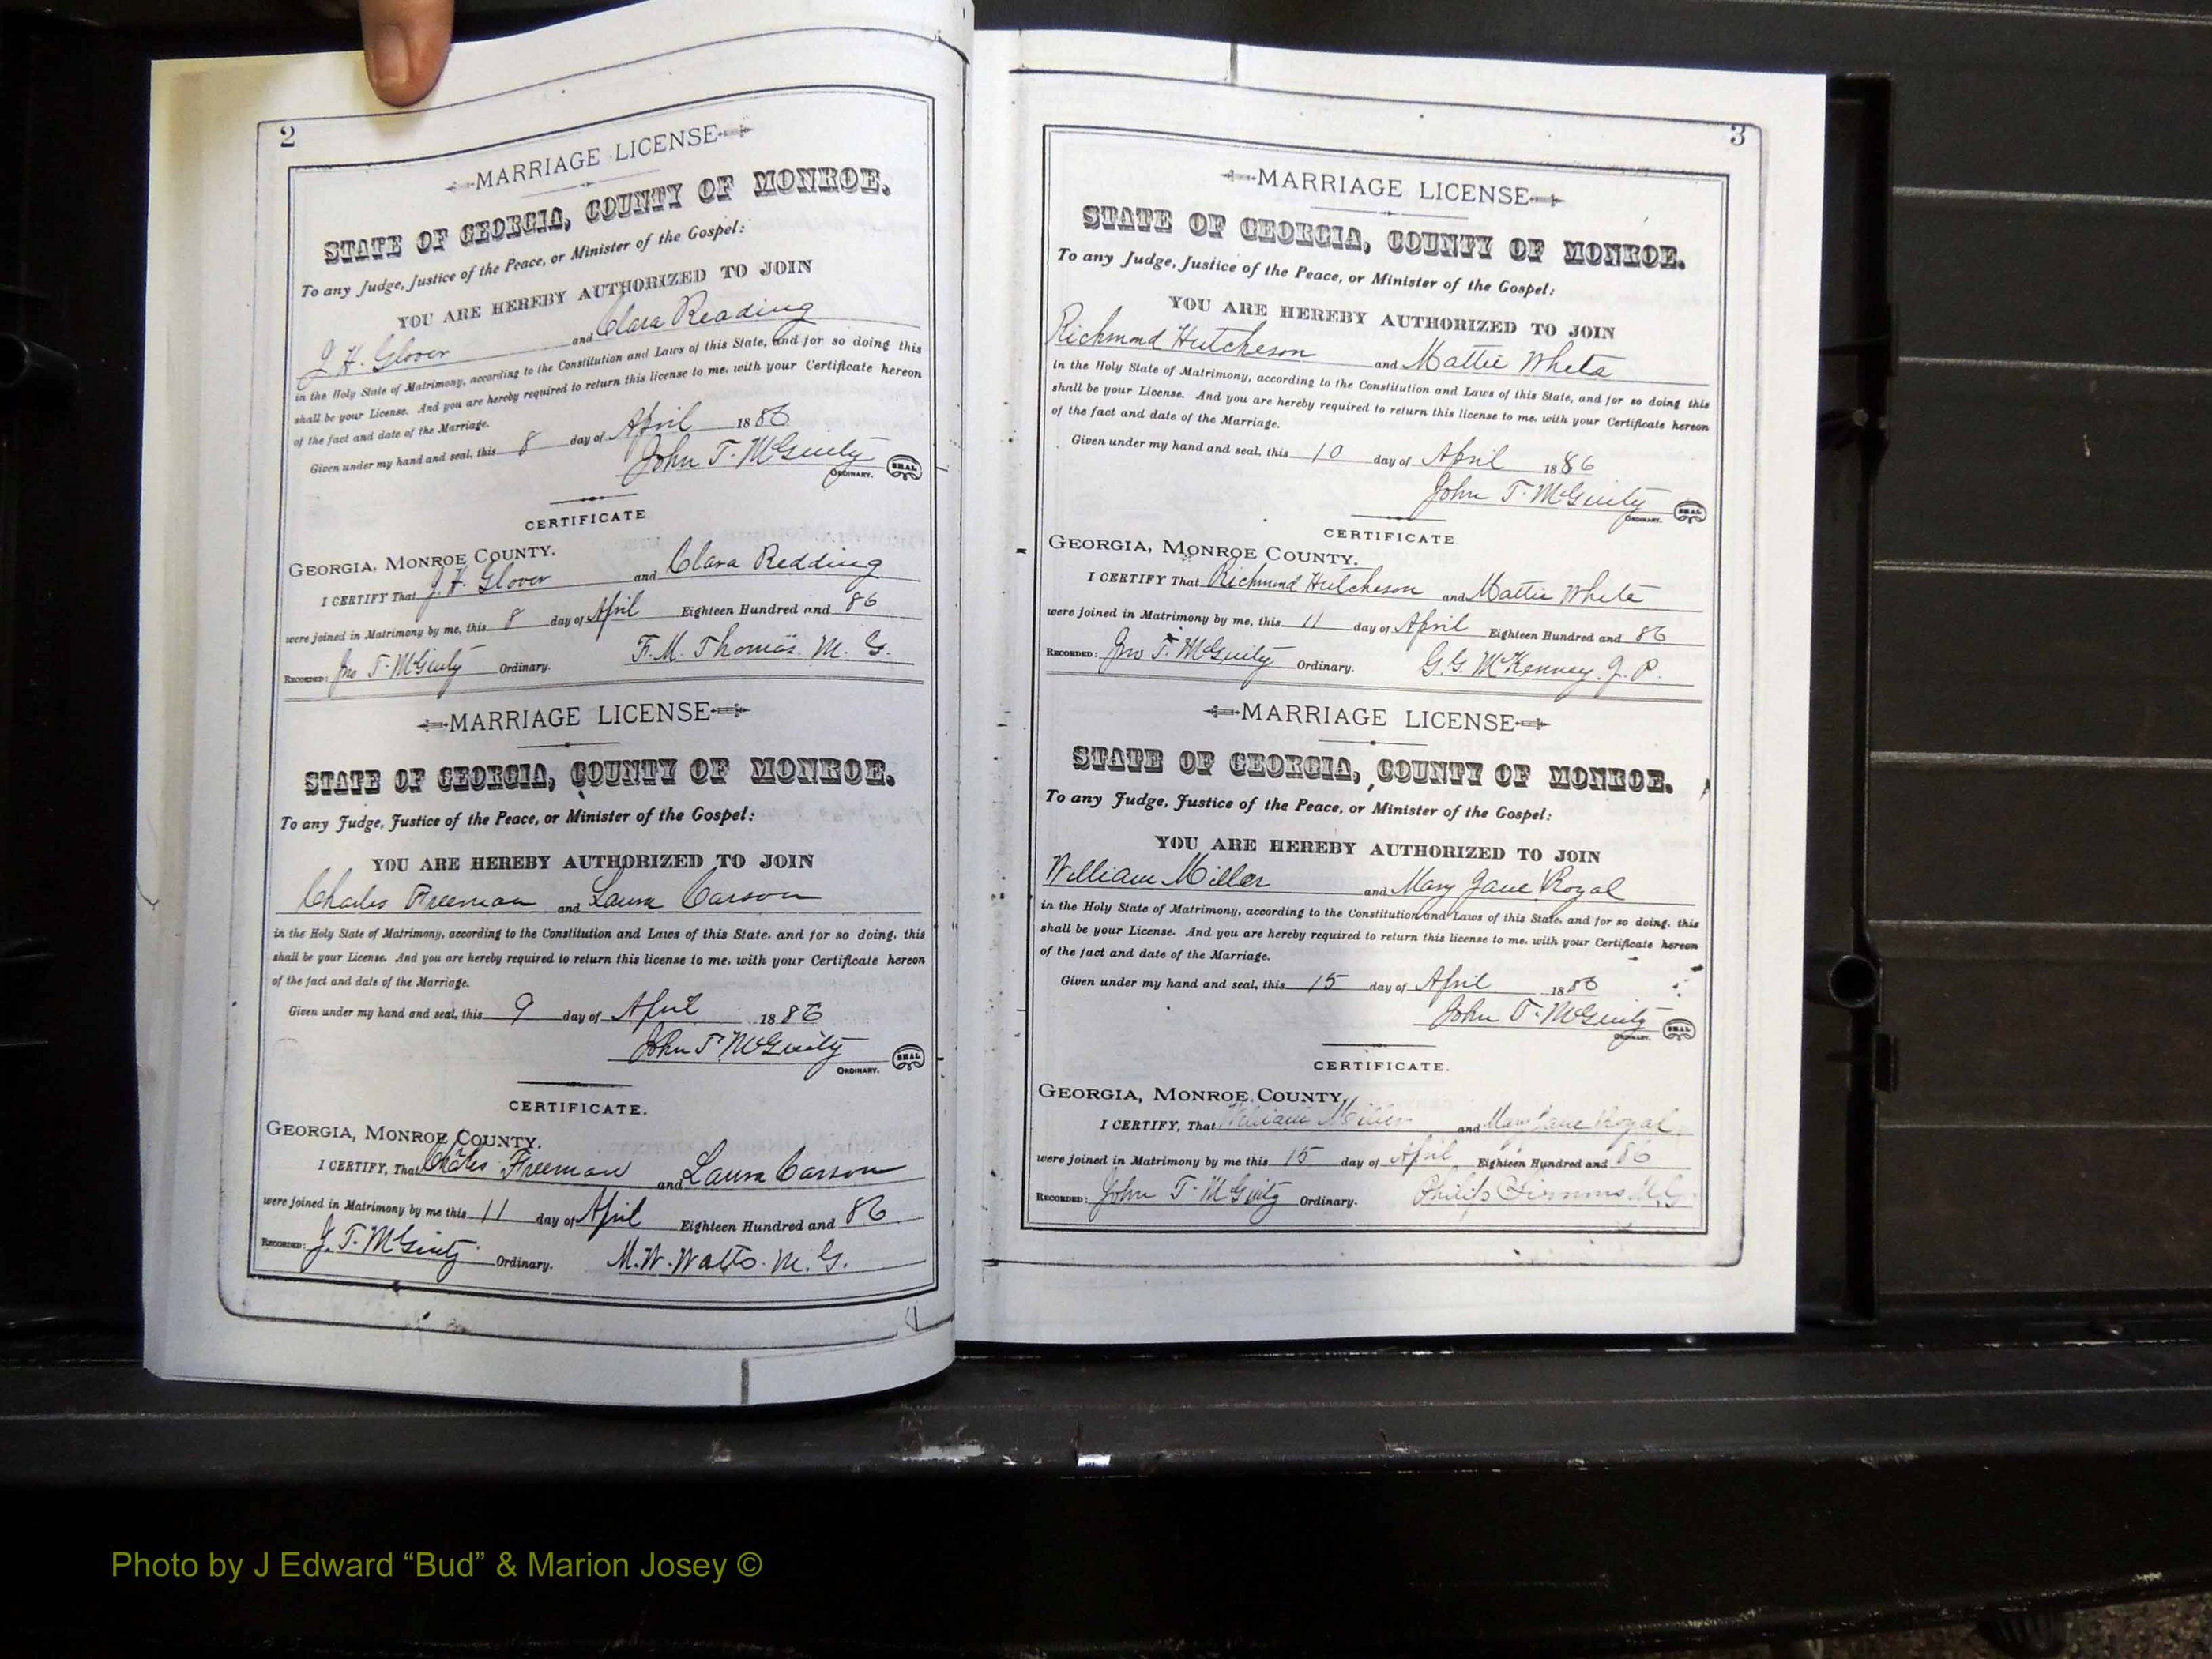 2
MARRIAGE LICENSE
STATE OF GEORGIA, COUNTY OF MONROE.
To any Judge, Justice of the Peace, or Minister of the Gospel:
YOU ARE HEREBY AUTHORIZED TO JOIN
J. H. Glover and Clara Reading
in the Holy State of Matrimony, according to the Constitution and Laws of this State, and for so doing this
shall be your License. And you are hereby required to return this license to me, with your Certificate hereon
of the fact and date of the Marriage.
Given under my hand and seal, this 8 day of April 1886
John T. McGinty
ORDINARY. SEAL
CERTIFICATE
GEORGIA, MONROE COUNTY.
I CERTIFY That J. H. Glover and Clara Redding
were joined in Matrimony by me, this 8 day of April Eighteen Hundred and 86
RECORDED: Jno T. McGinty Ordinary. F. M. Thomas. M. G.
MARRIAGE LICENSE
STATE OF GEORGIA, COUNTY OF MONROE.
To any Judge, Justice of the Peace, or Minister of the Gospel:
YOU ARE HEREBY AUTHORIZED TO JOIN
Charles Freeman and Laura Carson
in the Holy State of Matrimony, according to the Constitution and Laws of this State, and for so doing, this
shall be your License. And you are hereby required to return this license to me, with your Certificate hereon
of the fact and date of the Marriage.
Given under my hand and seal, this 9 day of April 1886
John T. McGinty
ORDINARY. SEAL
CERTIFICATE.
GEORGIA, MONROE COUNTY.
I CERTIFY, That Charles Freeman and Laura Carson
were joined in Matrimony by me this 11 day of April Eighteen Hundred and 86
RECORDED: J. T. McGinty Ordinary. M. W. Watts. M. G.
3
MARRIAGE LICENSE
STATE OF GEORGIA, COUNTY OF MONROE.
To any Judge, Justice of the Peace, or Minister of the Gospel:
YOU ARE HEREBY AUTHORIZED TO JOIN
Richmond Hutcheson and Mattie White
in the Holy State of Matrimony, according to the Constitution and Laws of this State, and for so doing this
shall be your License. And you are hereby required to return this license to me, with your Certificate hereon
of the fact and date of the Marriage.
Given under my hand and seal, this 10 day of April 1886
John T. McGinty
ORDINARY. SEAL
CERTIFICATE
GEORGIA, MONROE COUNTY.
I CERTIFY That Richmond Hutcheson and Mattie White
were joined in Matrimony by me, this 11 day of April Eighteen Hundred and 86
RECORDED: Jno T. McGinty Ordinary. G. G. McKenney. J. P.
MARRIAGE LICENSE
STATE OF GEORGIA, COUNTY OF MONROE.
To any Judge, Justice of the Peace, or Minister of the Gospel:
YOU ARE HEREBY AUTHORIZED TO JOIN
William Miller and Mary Jane Royal
in the Holy State of Matrimony, according to the Constitution and Laws of this State, and for so doing, this
shall be your License. And you are hereby required to return this license to me, with your Certificate hereon
of the fact and date of the Marriage.
Given under my hand and seal, this 15 day of April 1886
John T. McGinty
ORDINARY. SEAL
CERTIFICATE.
GEORGIA, MONROE COUNTY,
I CERTIFY, That William Miller and Mary Jane Royal
were joined in Matrimony by me this 15 day of April Eighteen Hundred and 86
RECORDED: John T. McGinty Ordinary. Philip Simmons M. G.
Photo by J Edward “Bud” & Marion Josey ©